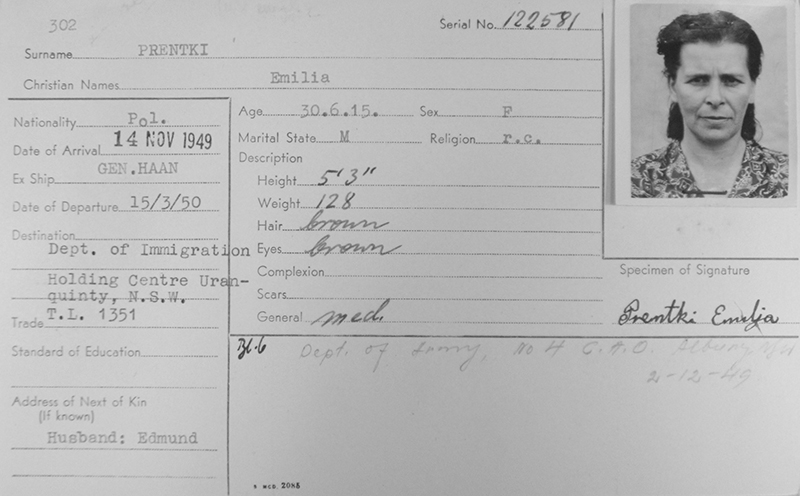 302
Serial No. 122581
Surname PRENTKI
Christian Names Emilia
Nationality Pol.
Date of Arrival 14 NOV 1949
Ex Ship GEN.HAAN
Date of Departure 15/3/50
Destination
Dept. of Immigration
Holding Centre Uran-
quinty, N.S.W.
Trade T.L. 1351
Standard of Education
Address of Next of Kin
(If known)
Husband: Edmund
Age 30.6.15. Sex F
Marital State M Religion r.c.
Description
Height 5'3"
Weight 128
Hair brown
Eyes brown
Complexion
Scars
General med.
Specimen of Signature
Prentki Emilja
Bl.6 Dept. of Immy, No 4 C.A.O. Albury
2-12-49
MCD. 2085